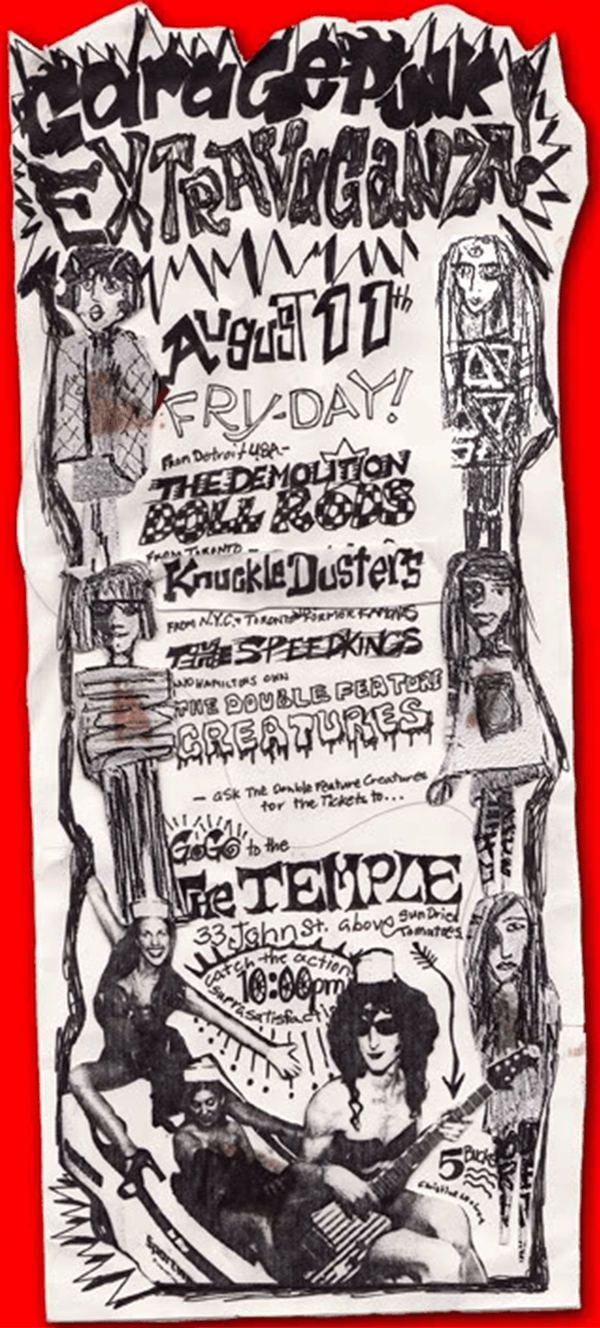 GaraGePunk
EXTRAVaGaNZA!
AuguST 11th
FRY-DAY!
From Detroit USA-
THE DEMOLITION
DOLL RODS
FROM TORONTO -
KnuckleDusters
FROM N.Y.C. + TORONTO
THE SPEEDKINGS
AND HAMILTONS OWN
THE DOUBLE FEATURE
CREATURES
- ask The Double Feature Creatures
for the Tickets to...
GoGo to the
The TEMPLE
33 John St. above Sun Dried
Tomatoes
catch the action
10:00pm
5 Bucks